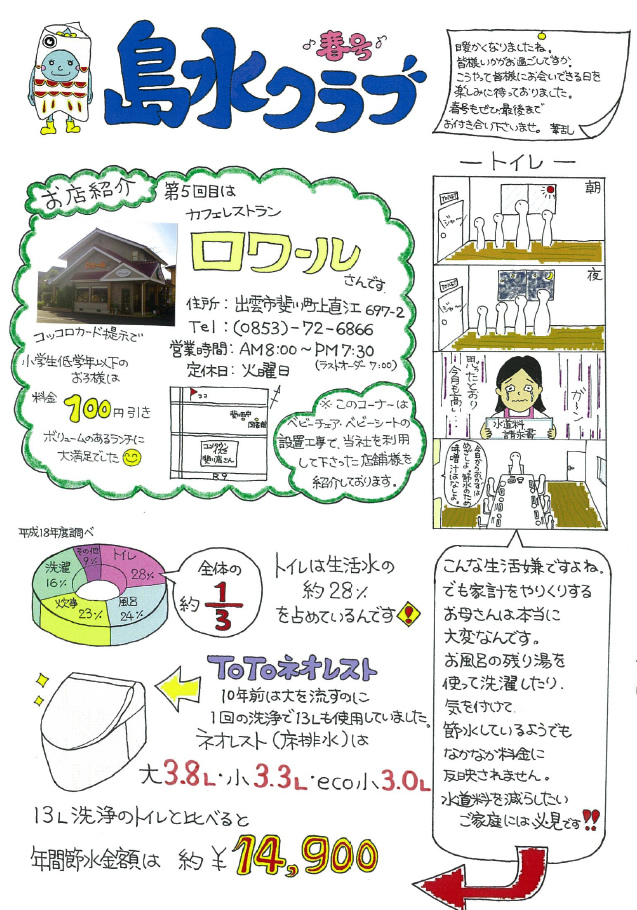 ♪春号♪
島水クラブ
暖かくなりましたね。
皆様いかがお過ごしですか。
こうして皆様にお会いできる日を
楽しみに待っておりました。
春号もぜひ最後まで
お付き合い下さいませ。
お店紹介
第5回目は
カフェレストラン
ロワール
さんです
住所：出雲市斐川町上直江697-2
Tel：(0853)-72-6866
営業時間：AM8:00～PM7:30
定休日：火曜日 (ラストオーダー 7:00)
コッコロカード提示で
小学生低学年以下の
お子様は
料金 100円引き
ボリュームのあるランチに
大満足でした
ココ
斐川町
図書館
コメリ
斐川店さん
R9
※このコーナーは
ベビーチェア・ベビーシートの
設置工事で、当社を利用
して下さった店舗様を
紹介しております。
ートイレー
朝
TOILET
ジャー
夜
TOILET
ジャー
思ったとおり
今月も高い
ガーン
水道料
請求書
今日からおかずは
めざしよ。節水のため
味噌汁はなしよ。
平成18年度調べ
その他
9%
トイレ
28%
洗濯
16%
炊事
23%
風呂
24%
全体の
約1/3
トイレは生活水の
約28%
を占めているんです!
TOTOネオレスト
10年前は大を流すのに
1回の洗浄で13Lも使用していました。
ネオレスト(床排水)は
大3.8L・小3.3L・eco小3.0L
13L洗浄のトイレと比べると
年間節水金額は 約¥14,900
こんな生活嫌ですよね。
でも家計をやりくりする
お母さんは本当に
大変なんです。
お風呂の残り湯を
使って洗濯したり、
気を付けて
節水しているようでも
なかなか料金に
反映されません。
水道料を減らしたい
ご家庭には必見です!!